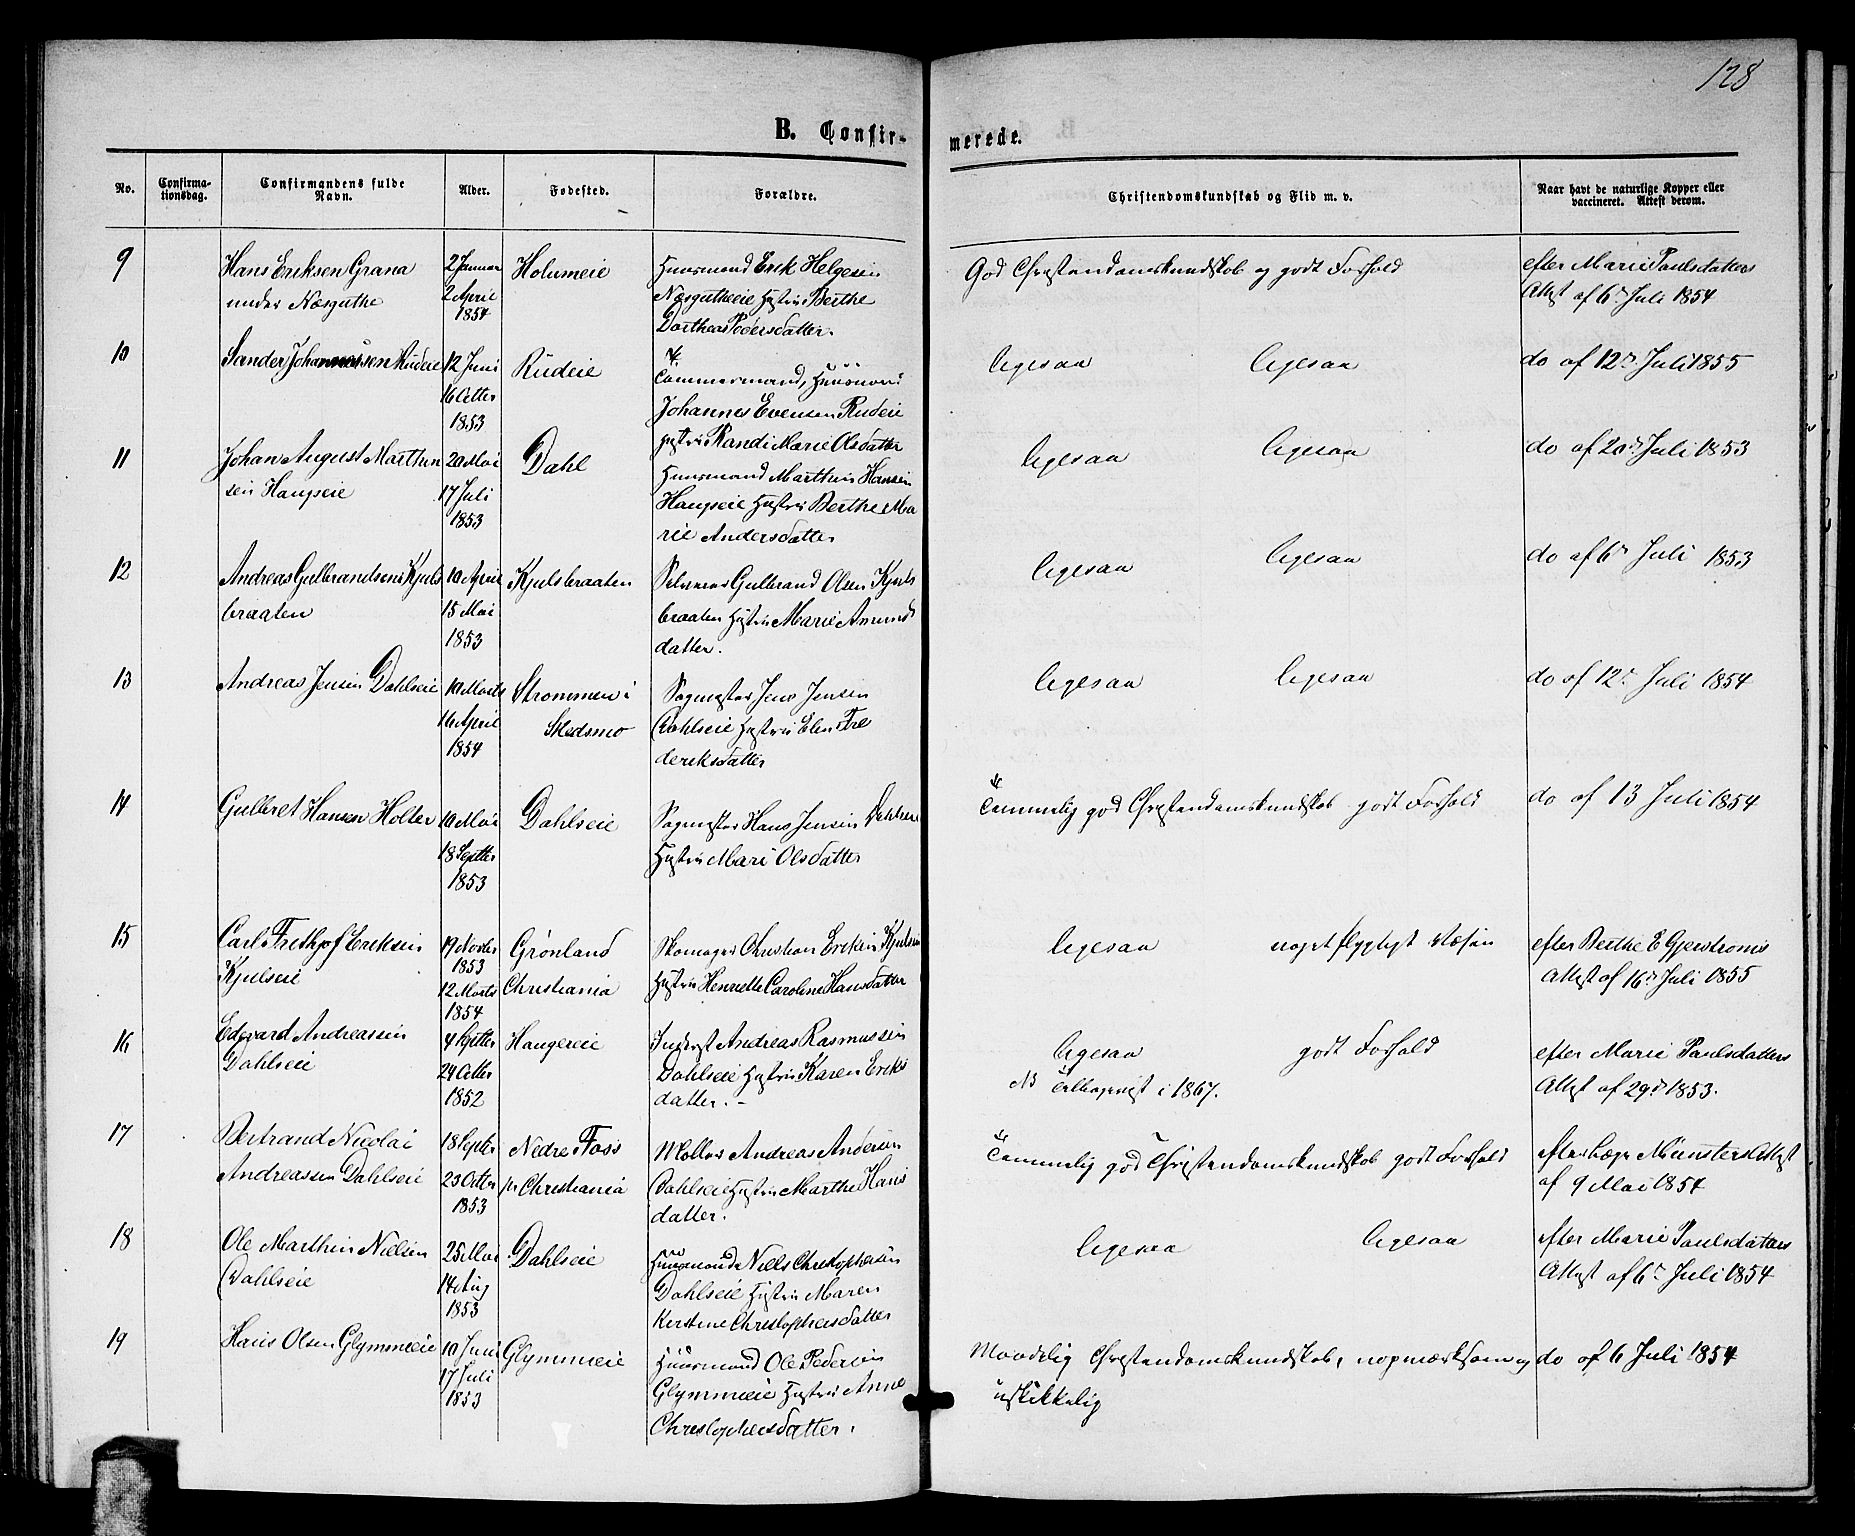 128
B. Confir-
merede.
No.
Confirma-
tionsdag.
Confirmandens fulde
Navn.
Alder.
Fødested.
Forældre.
Christendomskundskab og Flid m. v.
Naar havt de naturlige Kopper eller
vaccineret. Attest derom.
9
Hans Eriksen Grana
under Næsguthe
2 Januar
2 April
1854
Holumeie
Huusmand Erik Helgesen
Næsgutheeie Hustru Berthe
Dorthea Pedersdatter.
God Christendomskundskab og godt Forhold
efter Marie Paulsdatters
Attest af 6te Juli 1854
10
Sander Johannessen Rudeie
12 Juni
16 Octbr
1853
Rudeie
Tømmermand, Huusmand
Johannes Evensen Rudeie
Hustru Randi Marie Olsdatter
ligesaa ligesaa
do af 12te Juli 1855
11
Johan August Marthin
sen Haugseie
20 Mai
17 Juli
1853
Dahl
Huusmand Marthin Hansen
Haugseie Hustru Berthe Ma
rie Andersdatter
ligesaa ligesaa
do af 20de Juli 1853
12
Andreas Gulbrandsen Kjuls
braaten
10 April
15 Mai
1853
Kjulsbraaten
Selveier Gulbrand Olsen Kjuls
braaten Hustru Marie Amunds
datter.
ligesaa ligesaa
do af 6te Juli 1853
13
Andreas Jensen Dahlseie
10 Marts
16 April
1854
Strømmen i
Skedsmo
Sagmester Jens Jensen
Dahlseie Hustru Elen Fre
deriksdatter
ligesaa ligesaa
do af 12te Juli 1854
14
Gulbret Hansen Holter
10 Mai
18 Septbr
1853
Dahlseie
Sagmester Hans Jensen
Hustru Mari Olsdatter
Temmelig god Christendomskundskab godt Forhold
do af 13 Juli 1854
15
Carl Frethjof Eriksen
Kjulseie
19 Novbr
1853
12 Marts
1854
Grønland
Christiania
Skomager Christian Eriksen
Hustru Henriette Caroline Hansdatter
ligesaa noget flygtigt Væsen
efter Berthe E Gjerstroms
Attest af 16de Juli 1855
16
Edvard Andreassen
Dahlseie
4 Septbr
24 Octbr
1852
Haugereie
Inderst Andreas Rasmussen
Dahlseie Hustru Karen Eriks
datter. -
ligesaa godt Forhold
NB Tilbagevist i 1867.
efter Marie Paulsdatters
Attest af 29de 1853.
17
Bertrand Nicolai
Andreassen Dahlseie
18 Septbr
23 Octbr
1853
Nedre Foss
pr Christiania
Møller Andreas Andersen
Dahlseie Hustru Marthe Hans
datter.
Temmelig god Christendomskundskab godt Forhold
efter Læge Münsters Attest
af 9 Mai 1854
18
Ole Marthin Nielsen
Dahlseie
25 Mai
14 Aug
1853
Dahlseie
Huusmand Niels Christophersen
Dahlseie Hustru Maren
Kerstine Christophersdatter
ligesaa ligesaa
efter Marie Paulsdatters
Attest af 6te Juli 1854
19
Hans Olsen Glymmeeie
10 Juni
17 Juli
1853
Glymmeie
Huusmand Ole Pedersen
Glymmeeie Hustru Anne
Christophersdatter.
Maadelig Christendomskundskab, uopmærksom og
uskikkelig
do af 6 Juli 1854